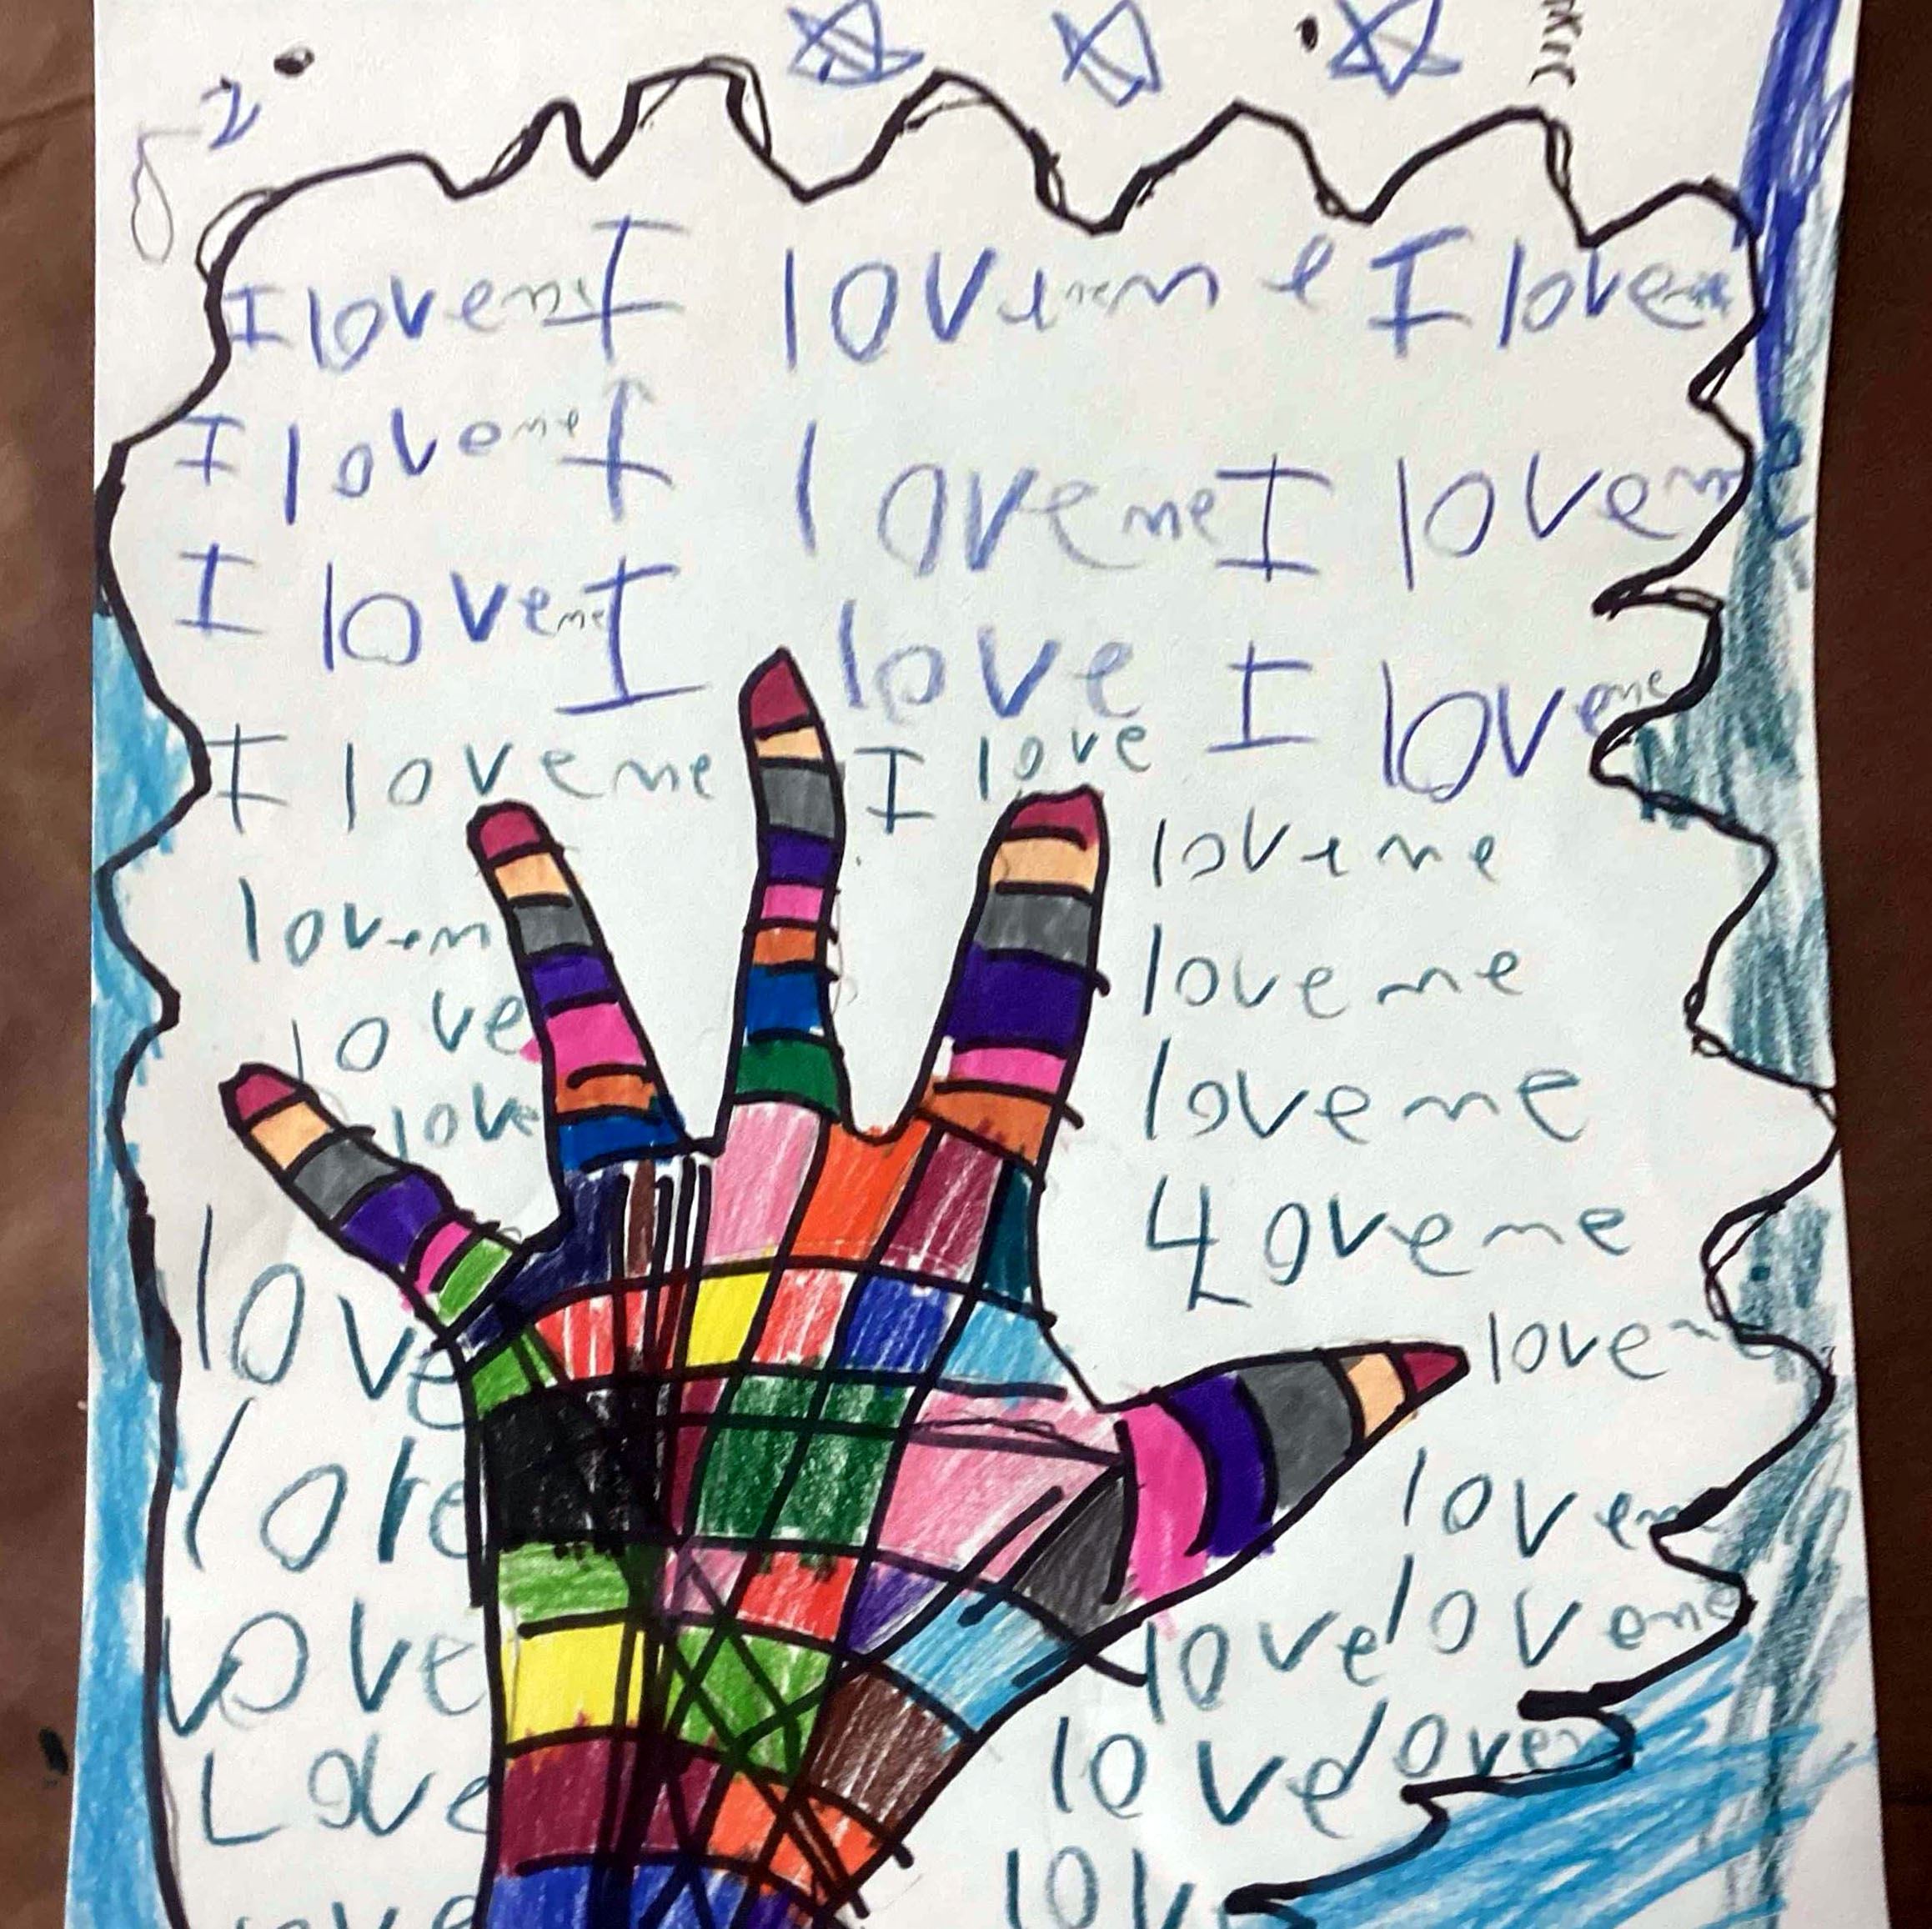 I love me I love me I love me
I love me I love me I love me
I love me I love I love me
I love me I love
love me
love me
love love me
love love me
love 4 Love me
love me
love love me
love love love me
Love love love
love lov